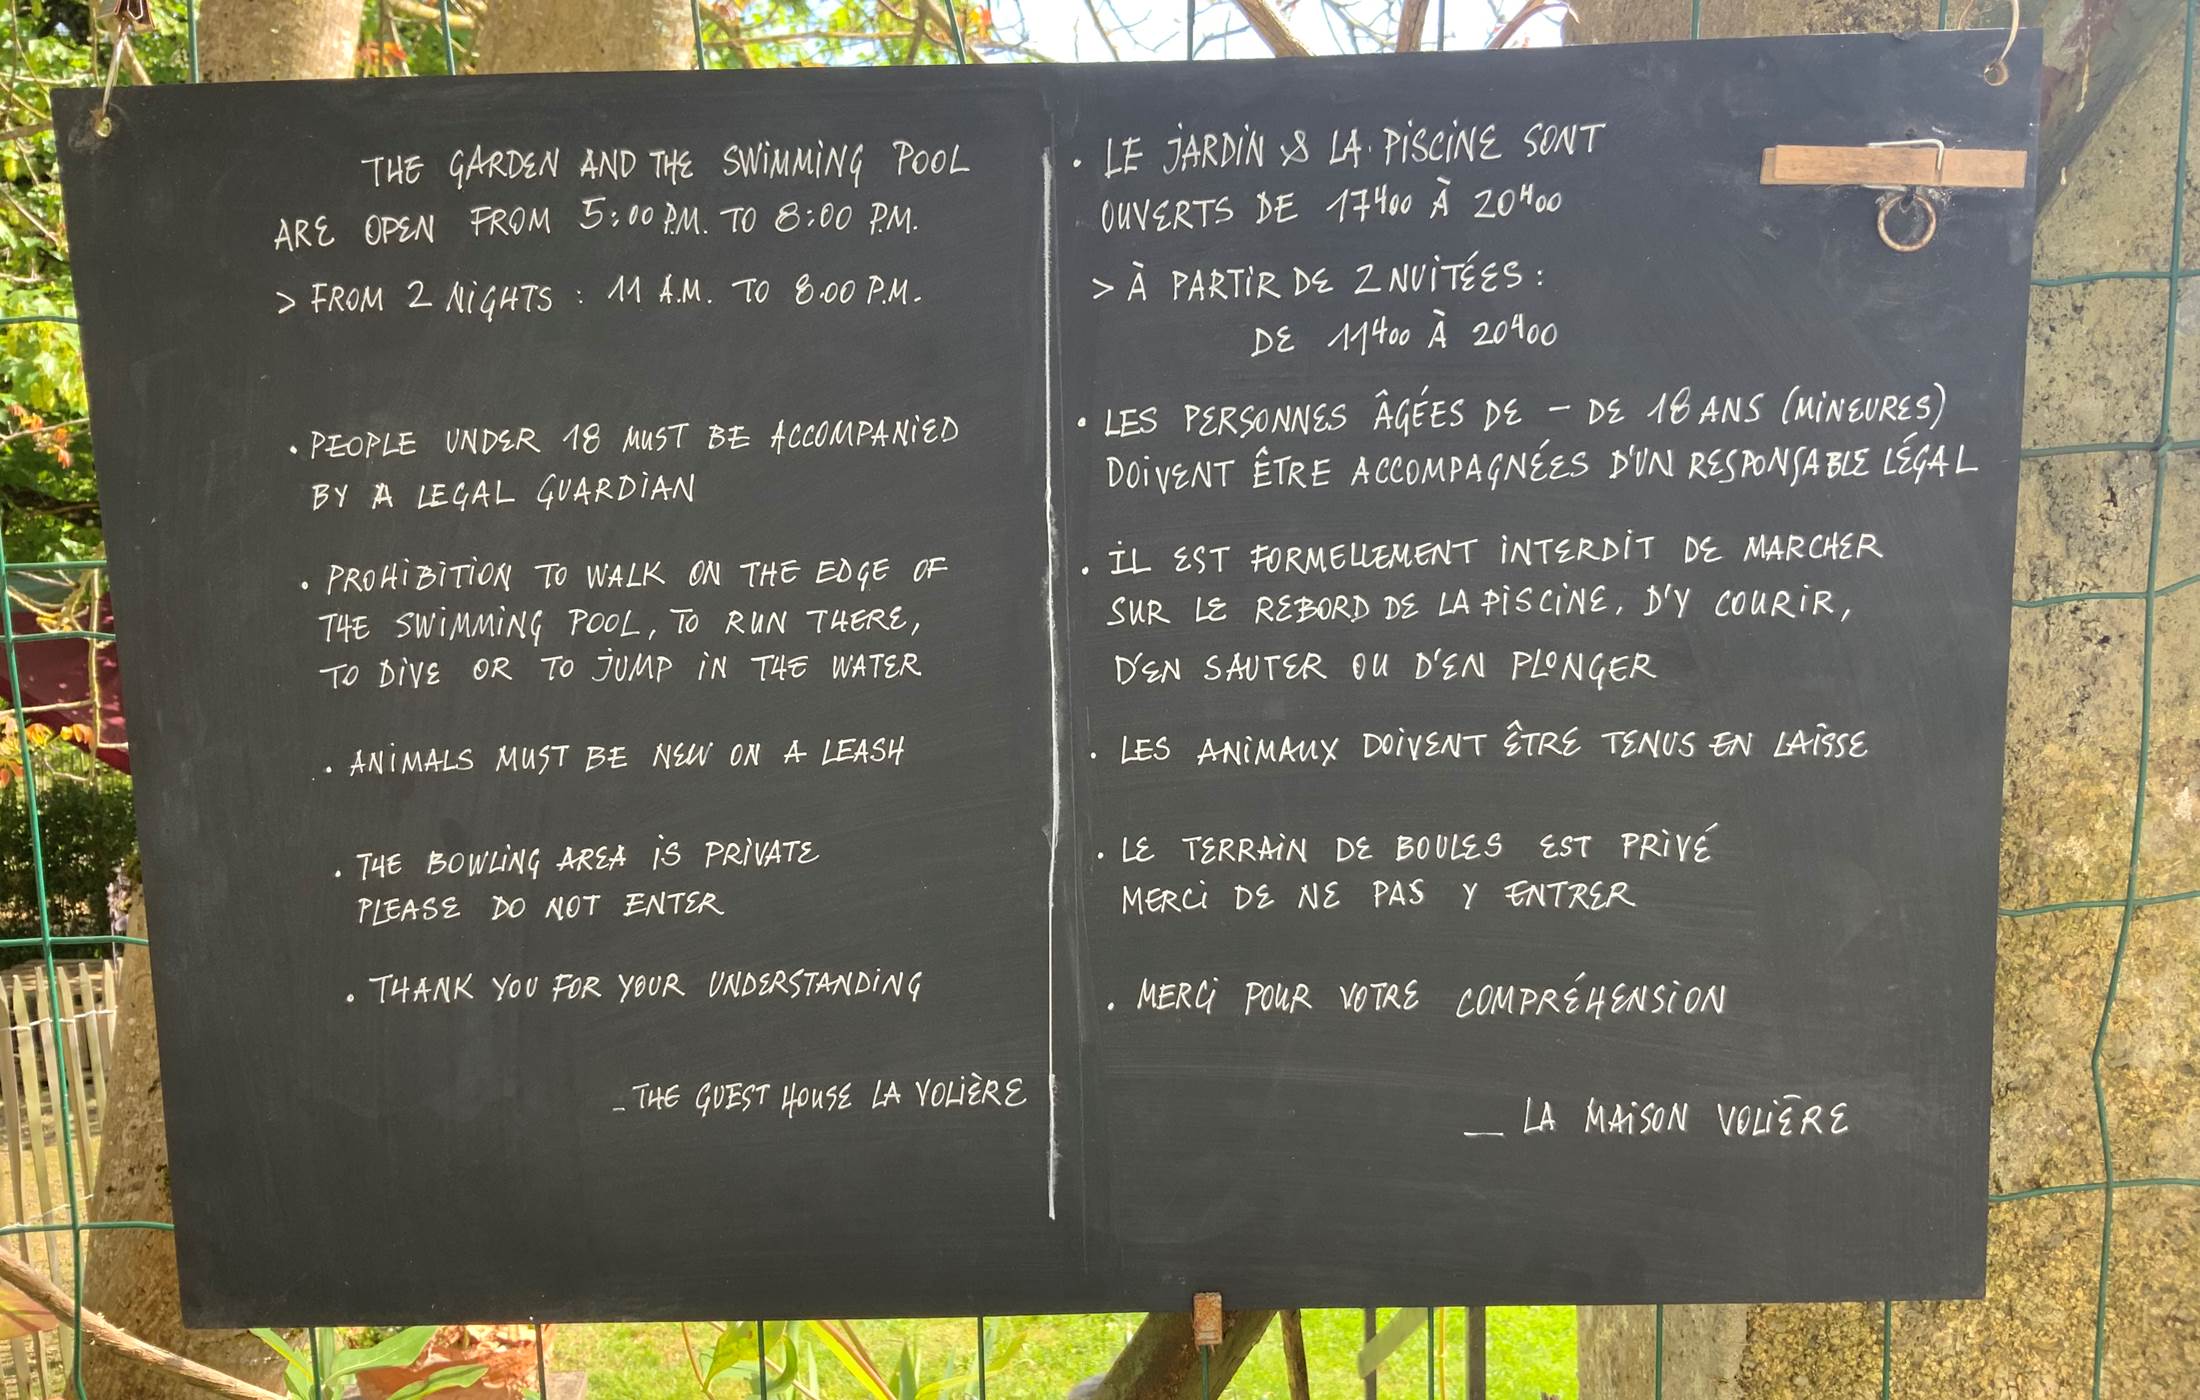 THE GARDEN AND THE SWIMMING POOL
ARE OPEN FROM 5:00 P.M. TO 8:00 P.M.
> FROM 2 NIGHTS : 11 A.M. TO 8.00 P.M.
• PEOPLE UNDER 18 MUST BE ACCOMPANIED
BY A LEGAL GUARDIAN
• PROHIBITION TO WALK ON THE EDGE OF
THE SWIMMING POOL, TO RUN THERE,
TO DIVE OR TO JUMP IN THE WATER
• ANIMALS MUST BE NEW ON A LEASH
• THE BOWLING AREA IS PRIVATE
PLEASE DO NOT ENTER
• THANK YOU FOR YOUR UNDERSTANDING
_ THE GUEST HOUSE LA VOLIÈRE
• LE JARDIN & LA PISCINE SONT
OUVERTS DE 17H00 À 20H00
> À PARTIR DE 2 NUITÉES :
DE 11H00 À 20H00
• LES PERSONNES ÂGÉES DE - DE 18 ANS (MINEURES)
DOIVENT ÊTRE ACCOMPAGNÉES D'UN RESPONSABLE LÉGAL
• IL EST FORMELLEMENT INTERDIT DE MARCHER
SUR LE REBORD DE LA PISCINE, D'Y COURIR,
D'EN SAUTER OU D'EN PLONGER
• LES ANIMAUX DOIVENT ÊTRE TENUS EN LAISSE
• LE TERRAIN DE BOULES EST PRIVÉ
MERCI DE NE PAS Y ENTRER
• MERCI POUR VOTRE COMPRÉHENSION
__ LA MAISON VOLIÈRE